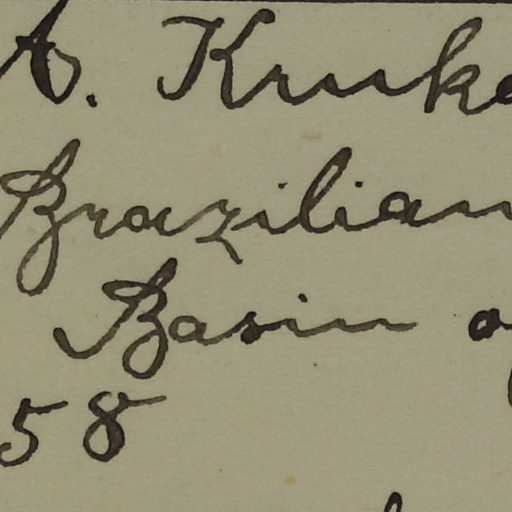 A. Kruk
Brazilian
Basin o
58